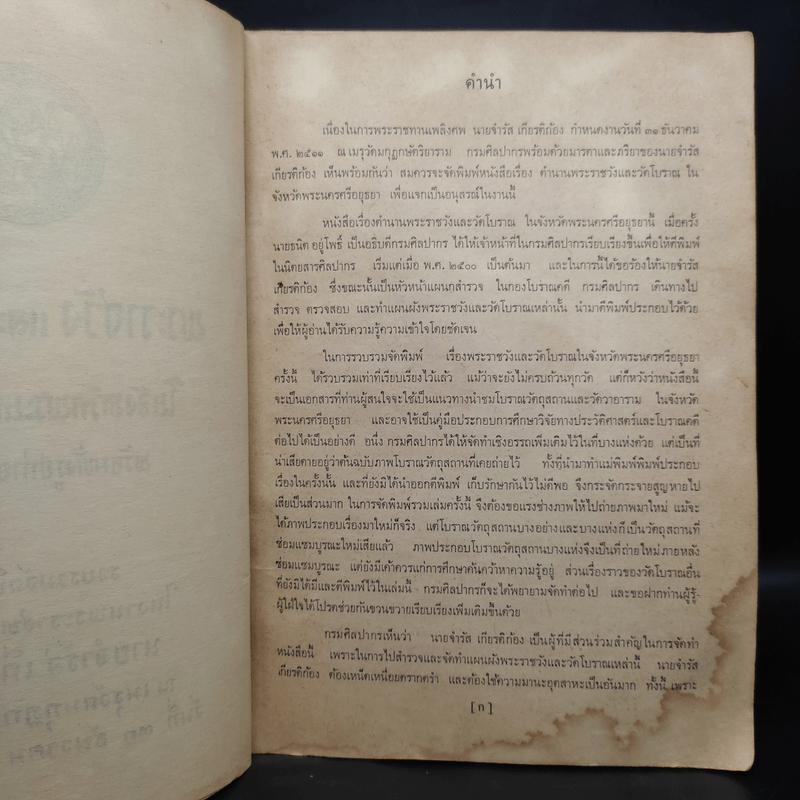 คำนำ
เนื่องในการพระราชทานเพลิงศพ นายจำรัส เกียรติก้อง กำหนดงานวันที่ ๓๑ ธันวาคม
พ.ศ. ๒๕๑๑ ณ เมรุวัดมกุฏกษัตริยาราม กรมศิลปากรพร้อมด้วยมารดาและภริยาของนายจำรัส
เกียรติก้อง เห็นพร้อมกันว่า สมควรจะจัดพิมพ์หนังสือเรื่อง ตำนานพระราชวังและวัดโบราณ ใน
จังหวัดพระนครศรีอยุธยา เพื่อแจกเป็นอนุสรณ์ในงานนี้
หนังสือเรื่องตำนานพระราชวังและวัดโบราณ ในจังหวัดพระนครศรีอยุธยานี้ เมื่อครั้ง
นายธนิต อยู่โพธิ์ เป็นอธิบดีกรมศิลปากร ได้ให้เจ้าหน้าที่ในกรมศิลปากรเรียบเรียงขึ้นเพื่อให้ตีพิมพ์
ในนิตยสารศิลปากร เริ่มแต่เมื่อ พ.ศ. ๒๕๐๐ เป็นต้นมา และในการนี้ได้ขอร้องให้นายจำรัส
เกียรติก้อง ซึ่งขณะนั้นเป็นหัวหน้าแผนกสำรวจ ในกองโบราณคดี กรมศิลปากร เดินทางไป
สำรวจ ตรวจสอบ และทำแผนผังพระราชวังและวัดโบราณเหล่านั้น นำมาตีพิมพ์ประกอบไว้ด้วย
เพื่อให้ผู้อ่านได้รับความรู้ความเข้าใจโดยชัดเจน
ในการรวบรวมจัดพิมพ์ เรื่องพระราชวังและวัดโบราณในจังหวัดพระนครศรีอยุธยา
ครั้งนี้ ได้รวบรวมเท่าที่เรียบเรียงไว้แล้ว แม้ว่าจะยังไม่ครบถ้วนทุกวัด แต่ก็หวังว่าหนังสือนี้
จะเป็นเอกสารที่ท่านผู้สนใจจะใช้เป็นแนวทางนำชมโบราณวัตถุสถานและวัดวาอาราม ในจังหวัด
พระนครศรีอยุธยา และอาจใช้เป็นคู่มือประกอบการศึกษาวิจัยทางประวัติศาสตร์และโบราณคดี
ต่อไปได้เป็นอย่างดี อนึ่ง กรมศิลปากรได้ให้จัดทำเชิงอรรถเพิ่มเติมไว้ในที่บางแห่งด้วย แต่เป็นที่
น่าเสียดายอยู่ว่าต้นฉบับภาพโบราณวัตถุสถานที่เคยถ่ายไว้ ทั้งที่นำมาทำแม่พิมพ์พิมพ์ประกอบ
เรื่องในครั้งนั้น และที่ยังมิได้นำออกตีพิมพ์ เก็บรักษากันไว้ไม่ดีพอ จึงกระจัดกระจายสูญหายไป
เสียเป็นส่วนมาก ในการจัดพิมพ์รวมเล่มครั้งนี้ จึงต้องขอแรงช่างภาพให้ไปถ่ายภาพมาใหม่ แม้จะ
ได้ภาพประกอบเรื่องมาใหม่ก็จริง แต่โบราณวัตถุสถานบางอย่างและบางแห่งก็เป็นวัตถุสถานที่
ซ่อมแซมบูรณะใหม่เสียแล้ว ภาพประกอบโบราณวัตถุสถานบางแห่งจึงเป็นที่ถ่ายใหม่ภายหลัง
ซ่อมแซมบูรณะ แต่ยังมีเค้าควรแก่การศึกษาค้นคว้าหาความรู้อยู่ ส่วนเรื่องราวของวัดโบราณอื่น
ที่ยังมิได้มีและตีพิมพ์ไว้ในเล่มนี้ กรมศิลปากรก็จะได้พยายามจัดทำต่อไป และขอฝากท่านผู้รู้-
ผู้ใฝ่ใจได้โปรดช่วยกันขวนขวายเรียบเรียงเพิ่มเติมขึ้นด้วย
กรมศิลปากรเห็นว่า นายจำรัส เกียรติก้อง เป็นผู้ที่มีส่วนร่วมสำคัญในการจัดทำ
หนังสือนี้ เพราะในการไปสำรวจและจัดทำแผนผังพระราชวังและวัดโบราณเหล่านี้ นายจำรัส
เกียรติก้อง ต้องเหน็ดเหนื่อยตรากตรำ และต้องใช้ความมานะอุตสาหะเป็นอันมาก ทั้งนี้ เพราะ
[ ก ]